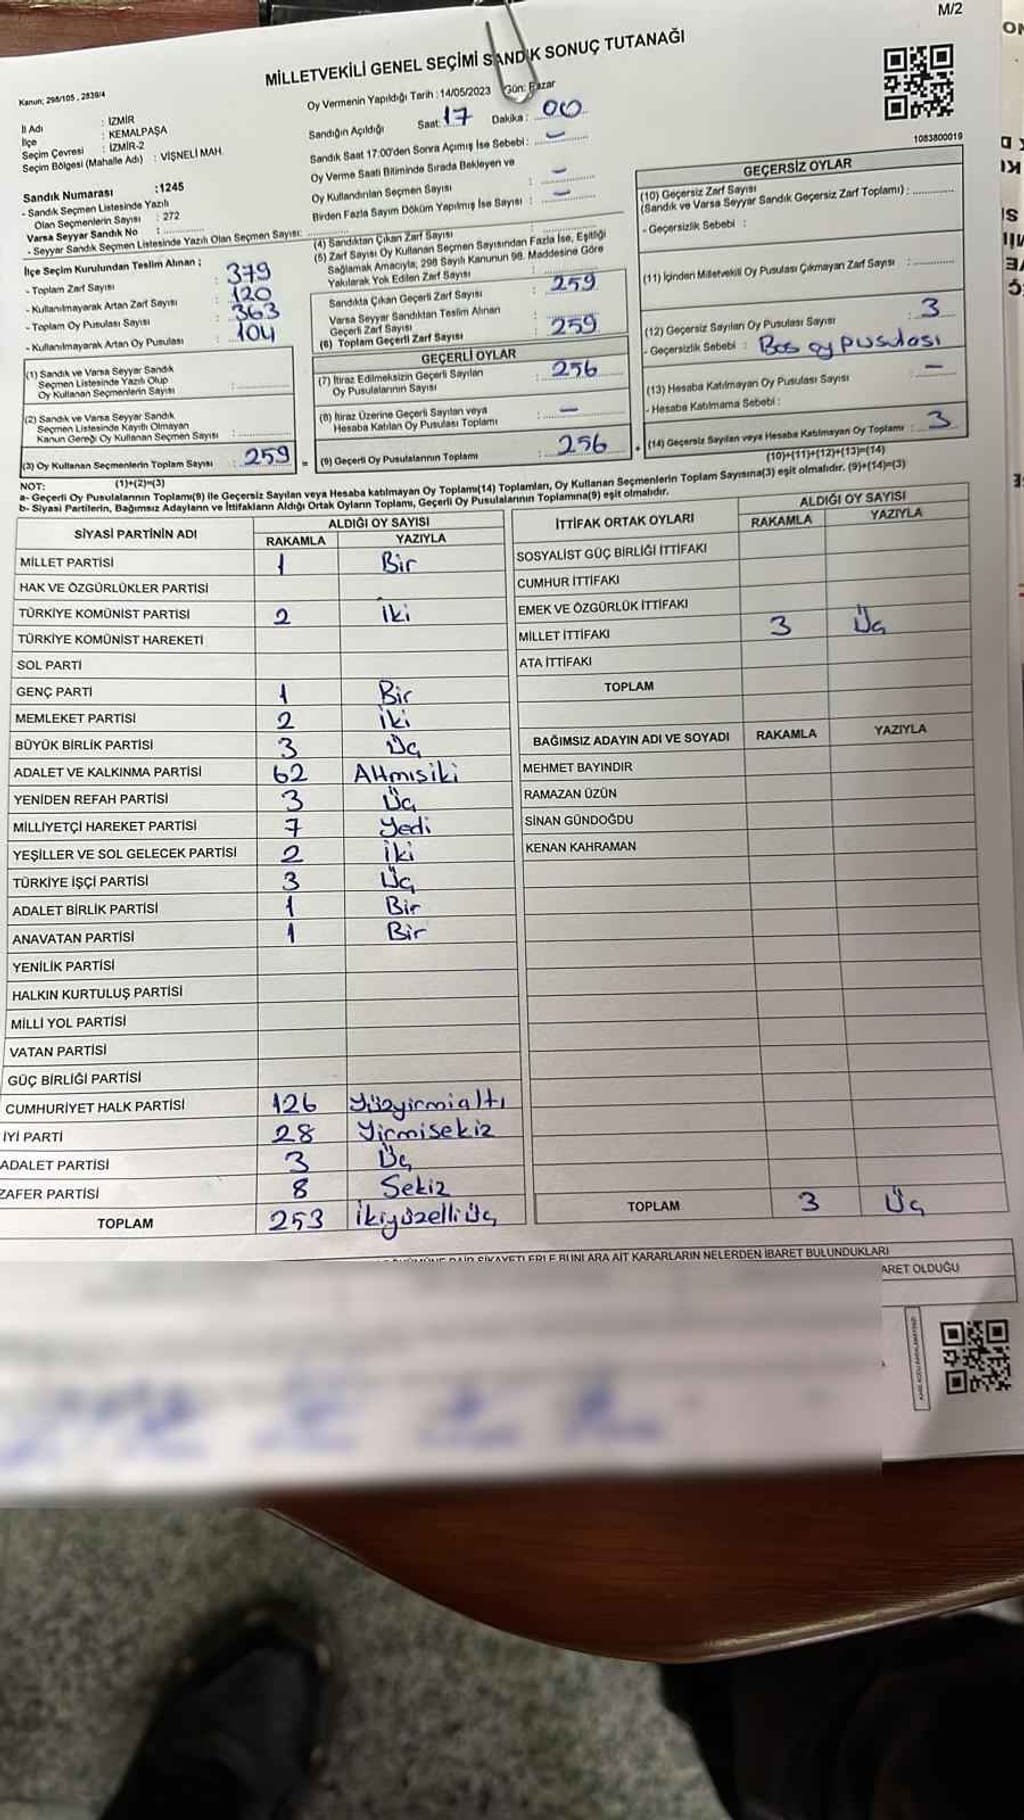 M/2
MİLLETVEKİLİ GENEL SEÇİMİ SANDIK SONUÇ TUTANAĞI
Kanun; 298/105 , 2839/4
Oy Vermenin Yapıldığı Tarih : 14/05/2023 Gün: Pazar
İl Adı : İZMİR
İlçe : KEMALPAŞA
Seçim Çevresi : İZMİR-2
Seçim Bölgesi (Mahalle Adı) : VİŞNELİ MAH.
Sandığın Açıldığı Saat: 17 Dakika : 00
Sandık Saat 17:00'den Sonra Açımış İse Sebebi : –
Oy Verme Saati Bitiminde Sırada Bekleyen ve
Oy Kullandırılan Seçmen Sayısı : –
Birden Fazla Sayım Döküm Yapılmış İse Sayısı : –
1083800019
Sandık Numarası :1245
- Sandık Seçmen Listesinde Yazılı
Olan Seçmenlerin Sayısı : 272
Varsa Seyyar Sandık No :
- Seyyar Sandık Seçmen Listesinde Yazılı Olan Seçmen Sayısı:
İlçe Seçim Kurulundan Teslim Alınan ;
- Toplam Zarf Sayısı : 379
- Kullanılmayarak Artan Zarf Sayısı : 120
- Toplam Oy Pusulası Sayısı : 363
- Kullanılmayarak Artan Oy Pusulası : 104
(1) Sandık ve Varsa Seyyar Sandık
Seçmen Listesinde Yazılı Olup
Oy Kullanan Seçmenlerin Sayısı :
(2) Sandık ve Varsa Seyyar Sandık
Seçmen Listesinde Kayıtlı Olmayan
Kanun Gereği Oy Kullanan Seçmen Sayısı :
(3) Oy Kullanan Seçmenlerin Toplam Sayısı : 259
(1)+(2)=(3)
(4) Sandıktan Çıkan Zarf Sayısı :
(5) Zarf Sayısı Oy Kullanan Seçmen Sayısından Fazla İse, Eşitliği
Sağlamak Amacıyla; 298 Sayılı Kanunun 98. Maddesine Göre
Yakılarak Yok Edilen Zarf Sayısı :
Sandıkta Çıkan Geçerli Zarf Sayısı : 259
Varsa Seyyar Sandıktan Teslim Alınan
Geçerli Zarf Sayısı :
(6) Toplam Geçerli Zarf Sayısı : 259
GEÇERLİ OYLAR
(7) İtiraz Edilmeksizin Geçerli Sayılan
Oy Pusulalarının Sayısı : 256
(8) İtiraz Üzerine Geçerli Sayılan veya
Hesaba Katılan Oy Pusulası Toplamı : –
(9) Geçerli Oy Pusulalarının Toplamı : 256
GEÇERSİZ OYLAR
(10) Geçersiz Zarf Sayısı
(Sandık ve Varsa Seyyar Sandık Geçersiz Zarf Toplamı) :
- Geçersizlik Sebebi :
(11) İçinden Milletvekili Oy Pusulası Çıkmayan Zarf Sayısı :
(12) Geçersiz Sayılan Oy Pusulası Sayısı : 3
- Geçersizlik Sebebi : Bos oy pusulası
(13) Hesaba Katılmayan Oy Pusulası Sayısı : –
- Hesaba Katılmama Sebebi :
(14) Geçersiz Sayılan veya Hesaba Katılmayan Oy Toplamı : 3
(10)+(11)+(12)+(13)=(14)
NOT:
a- Geçerli Oy Pusulalarının Toplamı(9) ile Geçersiz Sayılan veya Hesaba katılmayan Oy Toplamı(14) Toplamları, Oy Kullanan Seçmenlerin Toplam Sayısına(3) eşit olmalıdır. (9)+(14)=(3)
b- Siyasi Partilerin, Bağımsız Adayların ve İttifakların Aldığı Ortak Oyların Toplamı, Geçerli Oy Pusulalarının Toplamına(9) eşit olmalıdır.
SİYASİ PARTİNİN ADI ALDIĞI OY SAYISI
RAKAMLA YAZIYLA
MİLLET PARTİSİ 1 Bir
HAK VE ÖZGÜRLÜKLER PARTİSİ
TÜRKİYE KOMÜNİST PARTİSİ 2 İki
TÜRKİYE KOMÜNİST HAREKETİ
SOL PARTİ
GENÇ PARTİ 1 Bir
MEMLEKET PARTİSİ 2 İki
BÜYÜK BİRLİK PARTİSİ 3 Üç
ADALET VE KALKINMA PARTİSİ 62 Altmışiki
YENİDEN REFAH PARTİSİ 3 Üç
MİLLİYETÇİ HAREKET PARTİSİ 7 Yedi
YEŞİLLER VE SOL GELECEK PARTİSİ 2 İki
TÜRKİYE İŞÇİ PARTİSİ 3 Üç
ADALET BİRLİK PARTİSİ 1 Bir
ANAVATAN PARTİSİ 1 Bir
YENİLİK PARTİSİ
HALKIN KURTULUŞ PARTİSİ
MİLLİ YOL PARTİSİ
VATAN PARTİSİ
GÜÇ BİRLİĞİ PARTİSİ
CUMHURİYET HALK PARTİSİ 126 Yüzyirmialtı
İYİ PARTİ 28 Yirmisekiz
ADALET PARTİSİ 3 Üç
ZAFER PARTİSİ 8 Sekiz
TOPLAM 253 İkiyüzelliüç
İTTİFAK ORTAK OYLARI ALDIĞI OY SAYISI
RAKAMLA YAZIYLA
SOSYALİST GÜÇ BİRLİĞİ İTTİFAKI
CUMHUR İTTİFAKI
EMEK VE ÖZGÜRLÜK İTTİFAKI
MİLLET İTTİFAKI 3 Üç
ATA İTTİFAKI
TOPLAM
BAĞIMSIZ ADAYIN ADI VE SOYADI RAKAMLA YAZIYLA
MEHMET BAYINDIR
RAMAZAN ÜZÜN
SİNAN GÜNDOĞDU
KENAN KAHRAMAN
TOPLAM 3 Üç
ŞİKAYETLERLE BUNLARA AİT KARARLARIN NELERDEN İBARET BULUNDUKLARI
ARET OLDUĞU